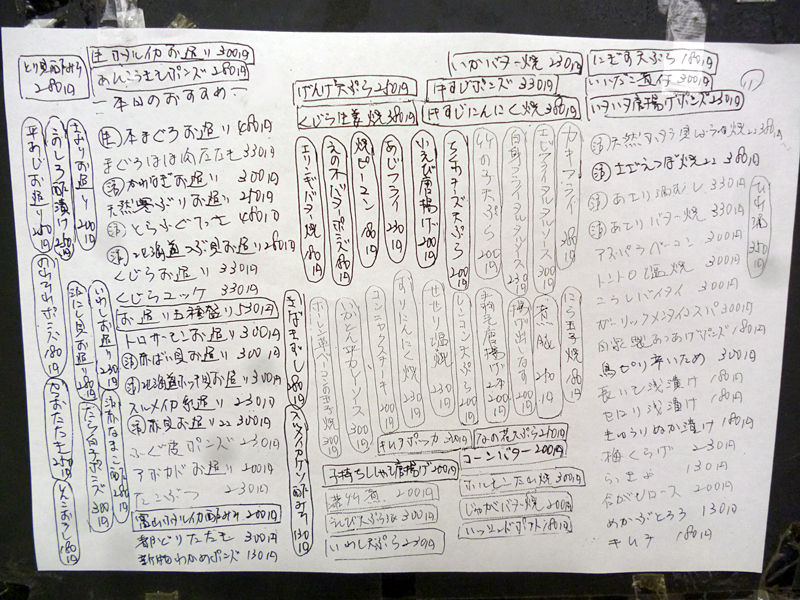 生ホタルイカお造り 300円
あんこうきもポンズ 280円
本日のおすすめ
280円
生 本まぐろお造り 480円
まぐろほほ肉たたき 330円
活 かわはぎお造り 300円
天然寒ぶりお造り 250円
活 とらふぐたたき 480円
活 北海道つぶ貝お造り 280円
くじらお造り 330円
くじらユッケ 330円
お造り五種盛り 530円
トロサーモンお造り 300円
活 赤ばい貝お造り 300円
活 北海道ホッキ貝お造り 300円
スルメイカお造り 230円
活 赤貝お造り 300円
ふぐ皮ポンズ 230円
アボカドお造り 200円
たこぶつ 230円
富山ホタルイカ 200円
都どりたたき 300円
新物わかめポンズ 130円
平あじお造り 250円
こはだ酢漬け 250円
さよりお造り 200円
活 にし貝お造り 280円
いわしお造り 230円
たら白子ポンズ 300円
活 赤なまこ酢 280円
かつおたたき 250円
げんげ天ぷら 250円
くじら生姜焼 380円
いかバター焼 230円
牛すじポンズ 330円
牛すじにんにく焼 380円
にぎす天ぷら 180円
いいだこ煮付 300円
ハタハタ唐揚げポンズ 230円
エリンギバター焼 180円
えの木バターポンズ 180円
焼ピーマン 180円
あじフライ 230円
いえび唐揚げ 200円
ちくわチーズ天ぷら 200円
竹の子天ぷら 200円
白身フライタルタルソース 230円
エビフライタルタルソース 300円
カキフライ 280円
ホーレン草ベーコン玉子焼 300円
いかとん平カレーソース 300円
コンニャクステーキ 200円
ずりにんにく焼 230円
せせり塩焼 230円
レンコン天ぷら 200円
手羽先唐揚げ2本 200円
揚げ出しなす 200円
煮豚 250円
にら玉子焼 180円
キムチポッカ 300円
なの花天ぷら 250円
子持ちししゃも唐揚げ 200円
コーンバター 200円
若竹煮 200円
ホルモンたれ焼 300円
えび天ぷら 300円
じゃがバター焼 200円
いわし天ぷら 230円
180円
活 天然ハタハタ 380円
活 さざえつぼ焼 380円
活 あさり酒むし 330円
活 あさりバター焼 330円
アスパラベーコン 300円
トントロ塩焼 300円
ガーリックメンタイコスパ 300円
自家製あつあげポンズ 180円
鳥せせり辛いため 300円
長いも浅漬け 180円
せロリ浅漬け 180円
きゅうりぬか漬け 180円
梅くらげ 230円
らっきょ 130円
合がもロース 200円
めかぶとろろ 130円
キムチ 180円
ひれ酒 350円